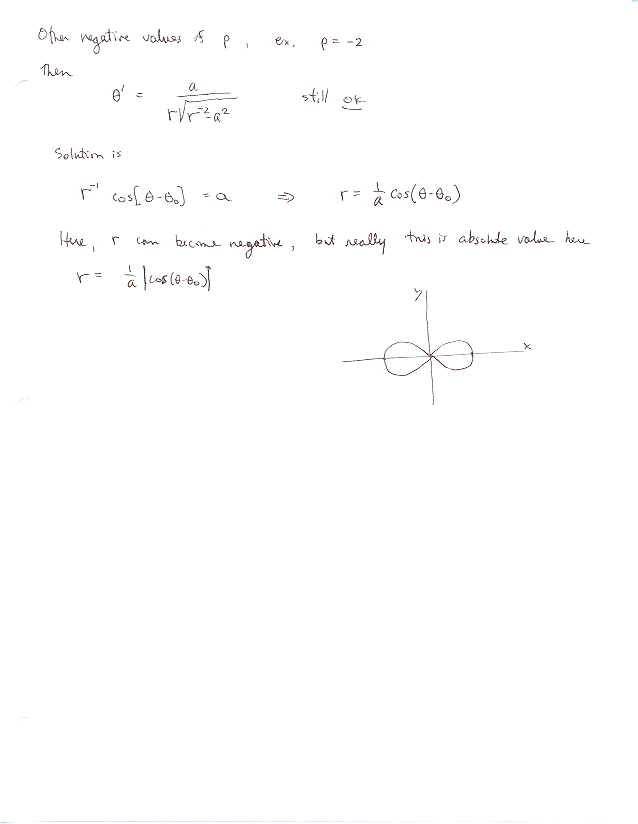 Other negative values of p, ex. p = -2
Then
θ' = a / (r√(r⁻² - a²)) still ok
Solution is
r⁻¹ cos[θ-θ₀] = a ⇒ r = 1/a cos(θ-θ₀)
Here, r can become negative, but really this is absolute value here
r = 1/a |cos(θ-θ₀)|
y
x